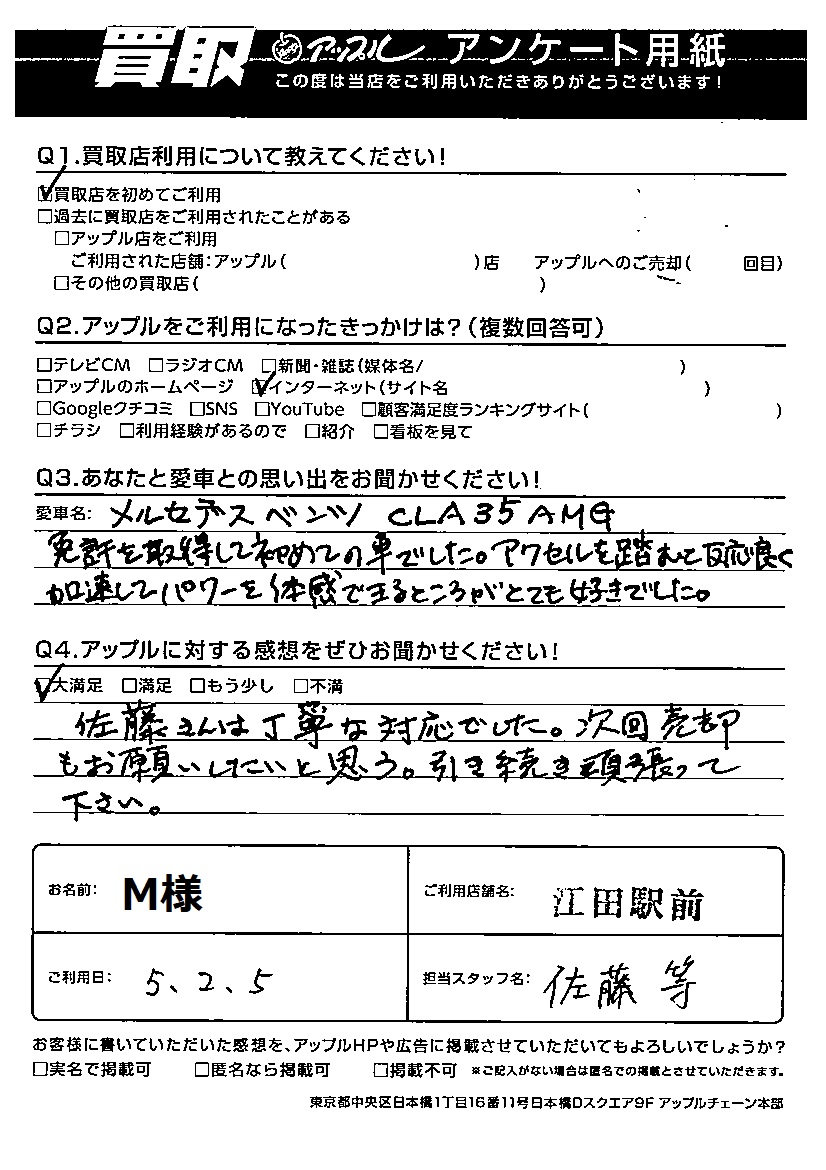 買取 アップル アンケート用紙
この度は当店をご利用いただきありがとうございます！
Q1.買取店利用について教えてください！
☑買取店を初めてご利用
□過去に買取店をご利用されたことがある
□アップル店をご利用
ご利用された店舗：アップル（　　　）店　アップルへのご売却（　　　回目）
□その他の買取店（　　　）
Q2.アップルをご利用になったきっかけは？（複数回答可）
□テレビCM　□ラジオCM　□新聞・雑誌（媒体名/　　　）
□アップルのホームページ　☑インターネット（サイト名　　　）
□Googleクチコミ　□SNS　□YouTube　□顧客満足度ランキングサイト（　　　）
□チラシ　□利用経験があるので　□紹介　□看板を見て
Q3.あなたと愛車との思い出をお聞かせください！
愛車名： メルセデスベンツ CLA35AMG
免許を取得して初めての車でした。アクセルを踏むと反応良く
加速してパワーを体感できるところがとても好きでした。
Q4.アップルに対する感想をぜひお聞かせください！
☑大満足　□満足　□もう少し　□不満
佐藤さんは丁寧な対応でした。次回売却
もお願いしたいと思う。引き続き頑張って
下さい。
お名前： M様　ご利用店舗名： 江田駅前
ご利用日： 5、2、5　担当スタッフ名： 佐藤 等
お客様に書いていただいた感想を、アップルHPや広告に掲載させていただいてもよろしいでしょうか？
□実名で掲載可　□匿名なら掲載可　□掲載不可　※ご記入がない場合は匿名での掲載とさせていただきます。
東京都中央区日本橋1丁目16番11号日本橋Dスクエア9F アップルチェーン本部